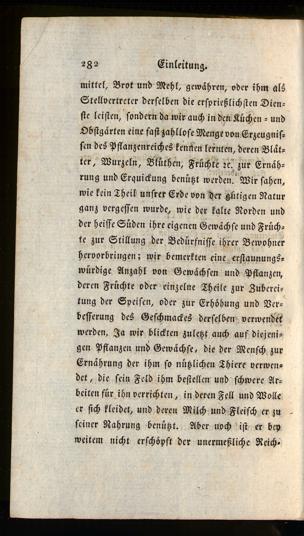 282 Einleitung.
mittel, Brot und Mehl, gewähren, oder ihm als
Stellvertreter derselben die ersprießlichsten Dien-
ste leisten, sondern da wir auch in den Küchen- und
Obstgärten eine fast zahllose Menge von Erzeugnis-
sen des Pflanzenreiches kennen lernten, deren Blät-
ter, Wurzeln, Blüthen, Früchte ꝛc. zur Ernäh-
rung und Erquickung benützt werden. Wir sahen,
wie kein Theil unsrer Erde von der gütigen Natur
ganz vergessen wurde, wie der kalte Norden und
der heisse Süden ihre eigenen Gewächse und Früch-
te zur Stillung der Bedürfnisse ihrer Bewohner
hervorbringen; wir bemerkten eine erstaunungs-
würdige Anzahl von Gewächsen und Pflanzen,
deren Früchte oder einzelne Theile zur Zuberei-
tung der Speisen, oder zur Erhöhung und Ver-
besserung des Geschmackes derselben verwendet
werden. Ja wir blickten zuletzt auch auf diejeni-
gen Pflanzen und Gewächse, die der Mensch zur
Ernährung der ihm so nützlichen Thiere verwen-
det, die sein Feld ihm bestellen und schwere Ar-
beiten für ihn verrichten, in deren Fell und Wolle
er sich kleidet, und deren Milch und Fleisch er zu
seiner Nahrung benützt. Aber noch ist er bey
weitem nicht erschöpft der unermeßliche Reich-